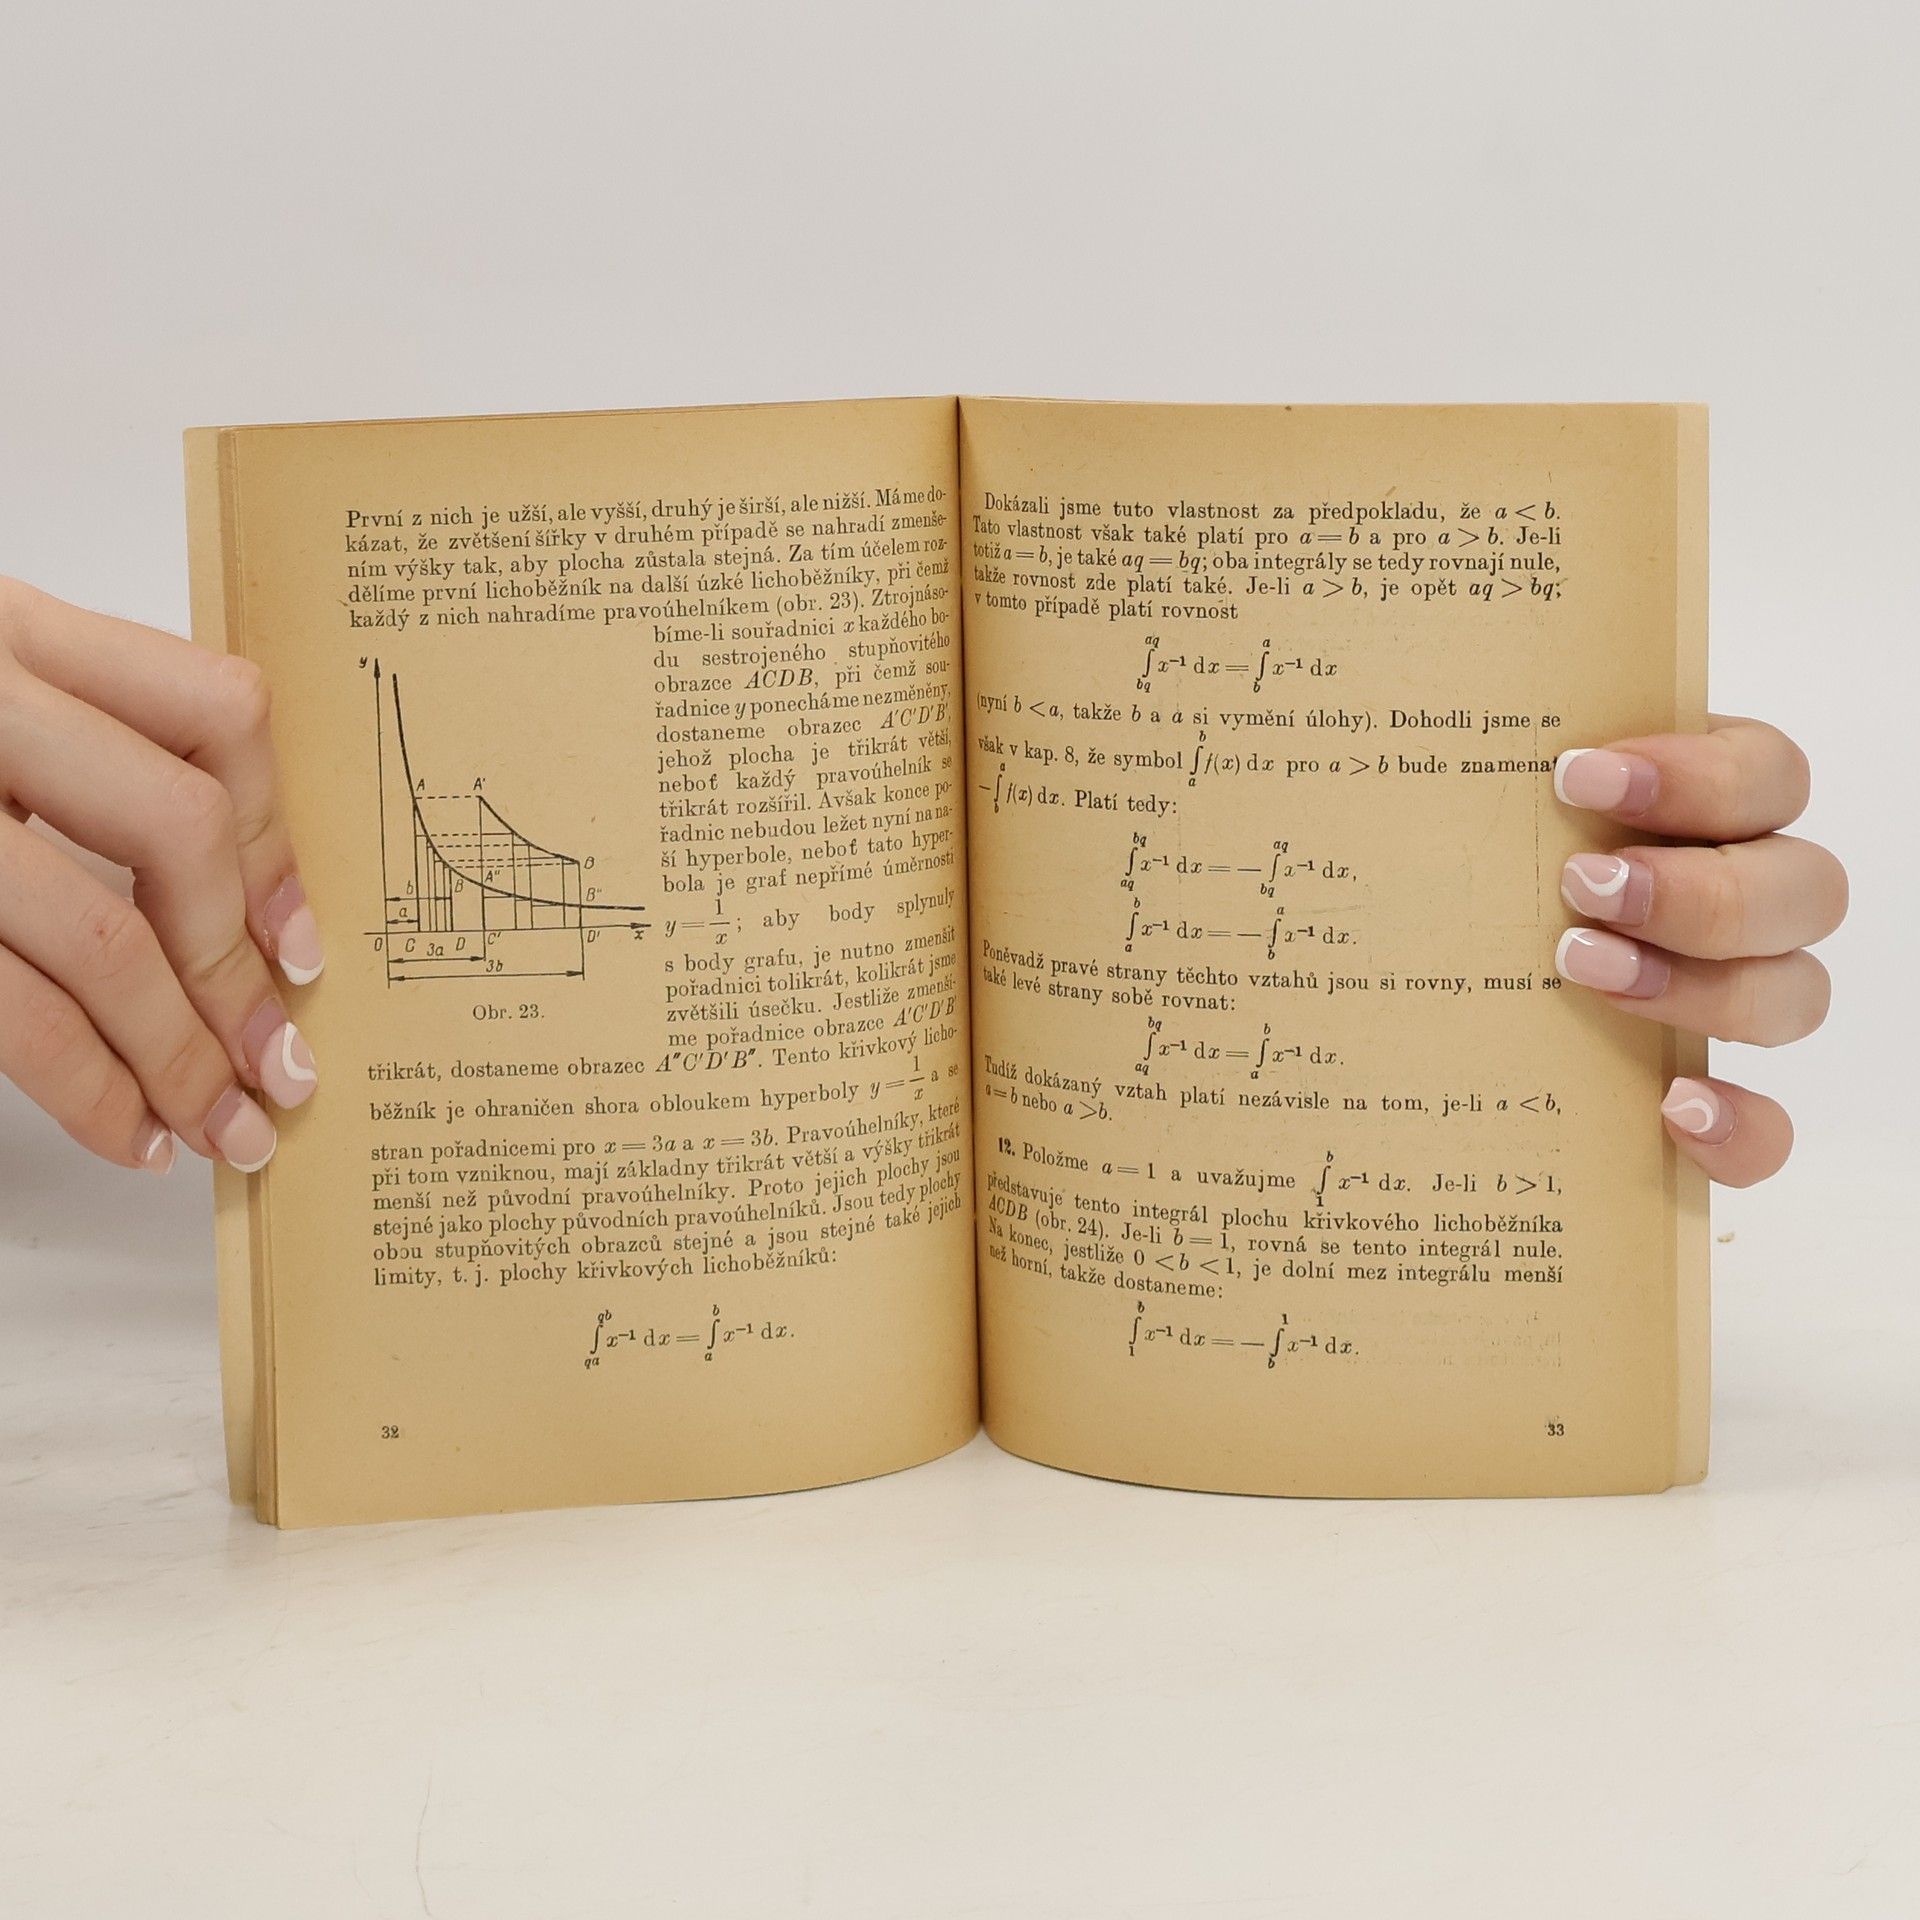 První z nich je užší, ale vyšší, druhý je širší, ale nižší. Máme do-
kázat, že zvětšení šířky v druhém případě se nahradí zmenše-
ním výšky tak, aby plocha zůstala stejná. Za tím účelem roz-
dělíme první lichoběžník na další úzké lichoběžníky, při čemž
každý z nich nahradíme pravoúhelníkem (obr. 23). Ztrojnáso-
bíme-li souřadnici x každého bo-
du sestrojeného stupňovitého
obrazce ACDB, při čemž sou-
řadnice y ponecháme nezměněny,
dostaneme obrazec A′C′D′B′,
jehož plocha je třikrát větší,
neboť každý pravoúhelník se
třikrát rozšířil. Avšak konce po-
řadnic nebudou ležet nyní na na-
ší hyperbole, neboť tato hyper-
bola je graf nepřímé úměrnosti
y = 1/x; aby body splynuly
s body grafu, je nutno zmenšit
pořadnici tolikrát, kolikrát jsme
zvětšili úsečku. Jestliže zmenší-
me pořadnice obrazce A′C′D′B′
y
A A′
B
b B A″ B″
a
O C 3a D C′ D′ x
3b
Obr. 23.
třikrát, dostaneme obrazec A″C′D′B″. Tento křivkový licho-
běžník je ohraničen shora obloukem hyperboly y = 1/x a se
stran pořadnicemi pro x = 3a a x = 3b. Pravoúhelníky, které
při tom vzniknou, mají základny třikrát větší a výšky třikrát
menší než původní pravoúhelníky. Proto jejich plochy jsou
stejné jako plochy původních pravoúhelníků. Jsou tedy plochy
obou stupňovitých obrazců stejné a jsou stejné také jejich
limity, t. j. plochy křivkových lichoběžníků:
∫_{qa}^{qb} x⁻¹ dx = ∫_{a}^{b} x⁻¹ dx.
32
Dokázali jsme tuto vlastnost za předpokladu, že a < b.
Tato vlastnost však také platí pro a = b a pro a > b. Je-li
totiž a = b, je také aq = bq; oba integrály se tedy rovnají nule,
takže rovnost zde platí také. Je-li a > b, je opět aq > bq;
v tomto případě platí rovnost
∫_{bq}^{aq} x⁻¹ dx = ∫_{b}^{a} x⁻¹ dx
(nyní b < a, takže b a a si vymění úlohy). Dohodli jsme se
však v kap. 8, že symbol ∫_{a}^{b} f(x) dx pro a > b bude znamenat
—∫_{b}^{a} f(x) dx. Platí tedy:
∫_{aq}^{bq} x⁻¹ dx = — ∫_{bq}^{aq} x⁻¹ dx,
∫_{a}^{b} x⁻¹ dx = — ∫_{b}^{a} x⁻¹ dx.
Poněvadž pravé strany těchto vztahů jsou si rovny, musí se
také levé strany sobě rovnat:
∫_{aq}^{bq} x⁻¹ dx = ∫_{a}^{b} x⁻¹ dx.
Tudíž dokázaný vztah platí nezávisle na tom, je-li a < b,
a = b nebo a > b.
12. Položme a = 1 a uvažujme ∫_{1}^{b} x⁻¹ dx. Je-li b > 1,
představuje tento integrál plochu křivkového lichoběžníka
ACDB (obr. 24). Je-li b = 1, rovná se tento integrál nule.
Na konec, jestliže 0 < b < 1, je dolní mez integrálu menší
než horní, takže dostaneme:
∫_{1}^{b} x⁻¹ dx = — ∫_{b}^{1} x⁻¹ dx.
33